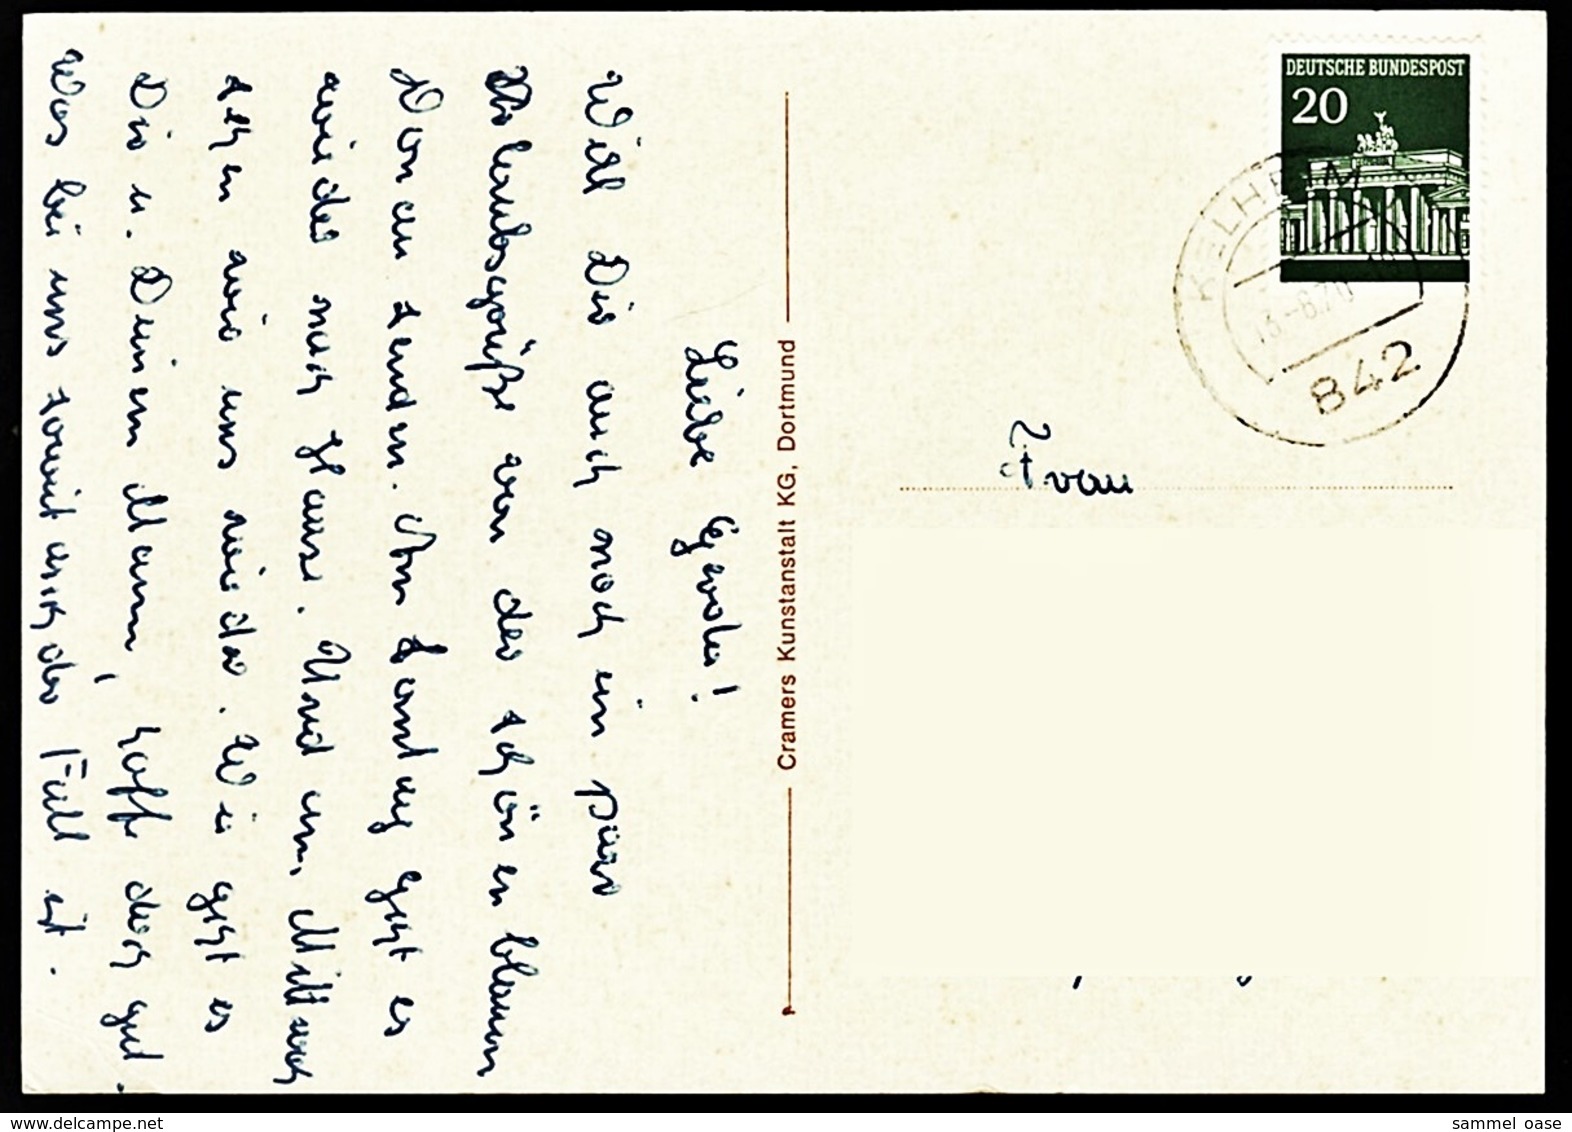 Liebe Gerda!
Will Dir auch noch ein paar
Urlaubsgrüße von der schönen blauen
Donau senden. Am Sonntag geht es
wieder nach Hause. Und am, Mittwoch
sehen wir uns wieder. Wie geht es
Dir u. Deinem Mann, hoffe doch gut.
Was bei uns soweit auch der Fall ist.
Cramers Kunstanstalt KG, Dortmund
DEUTSCHE BUNDESPOST
20
KELHEIM
13.-8.70
842
Frau
www.delcampe.net
sammel_oase